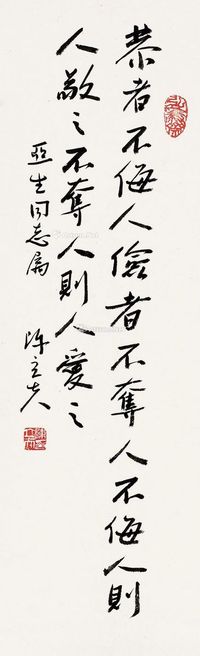 恭者不侮人儉者不奪人不侮人則
人敬之不奪人則人愛之
亞生同志屬
陳立夫